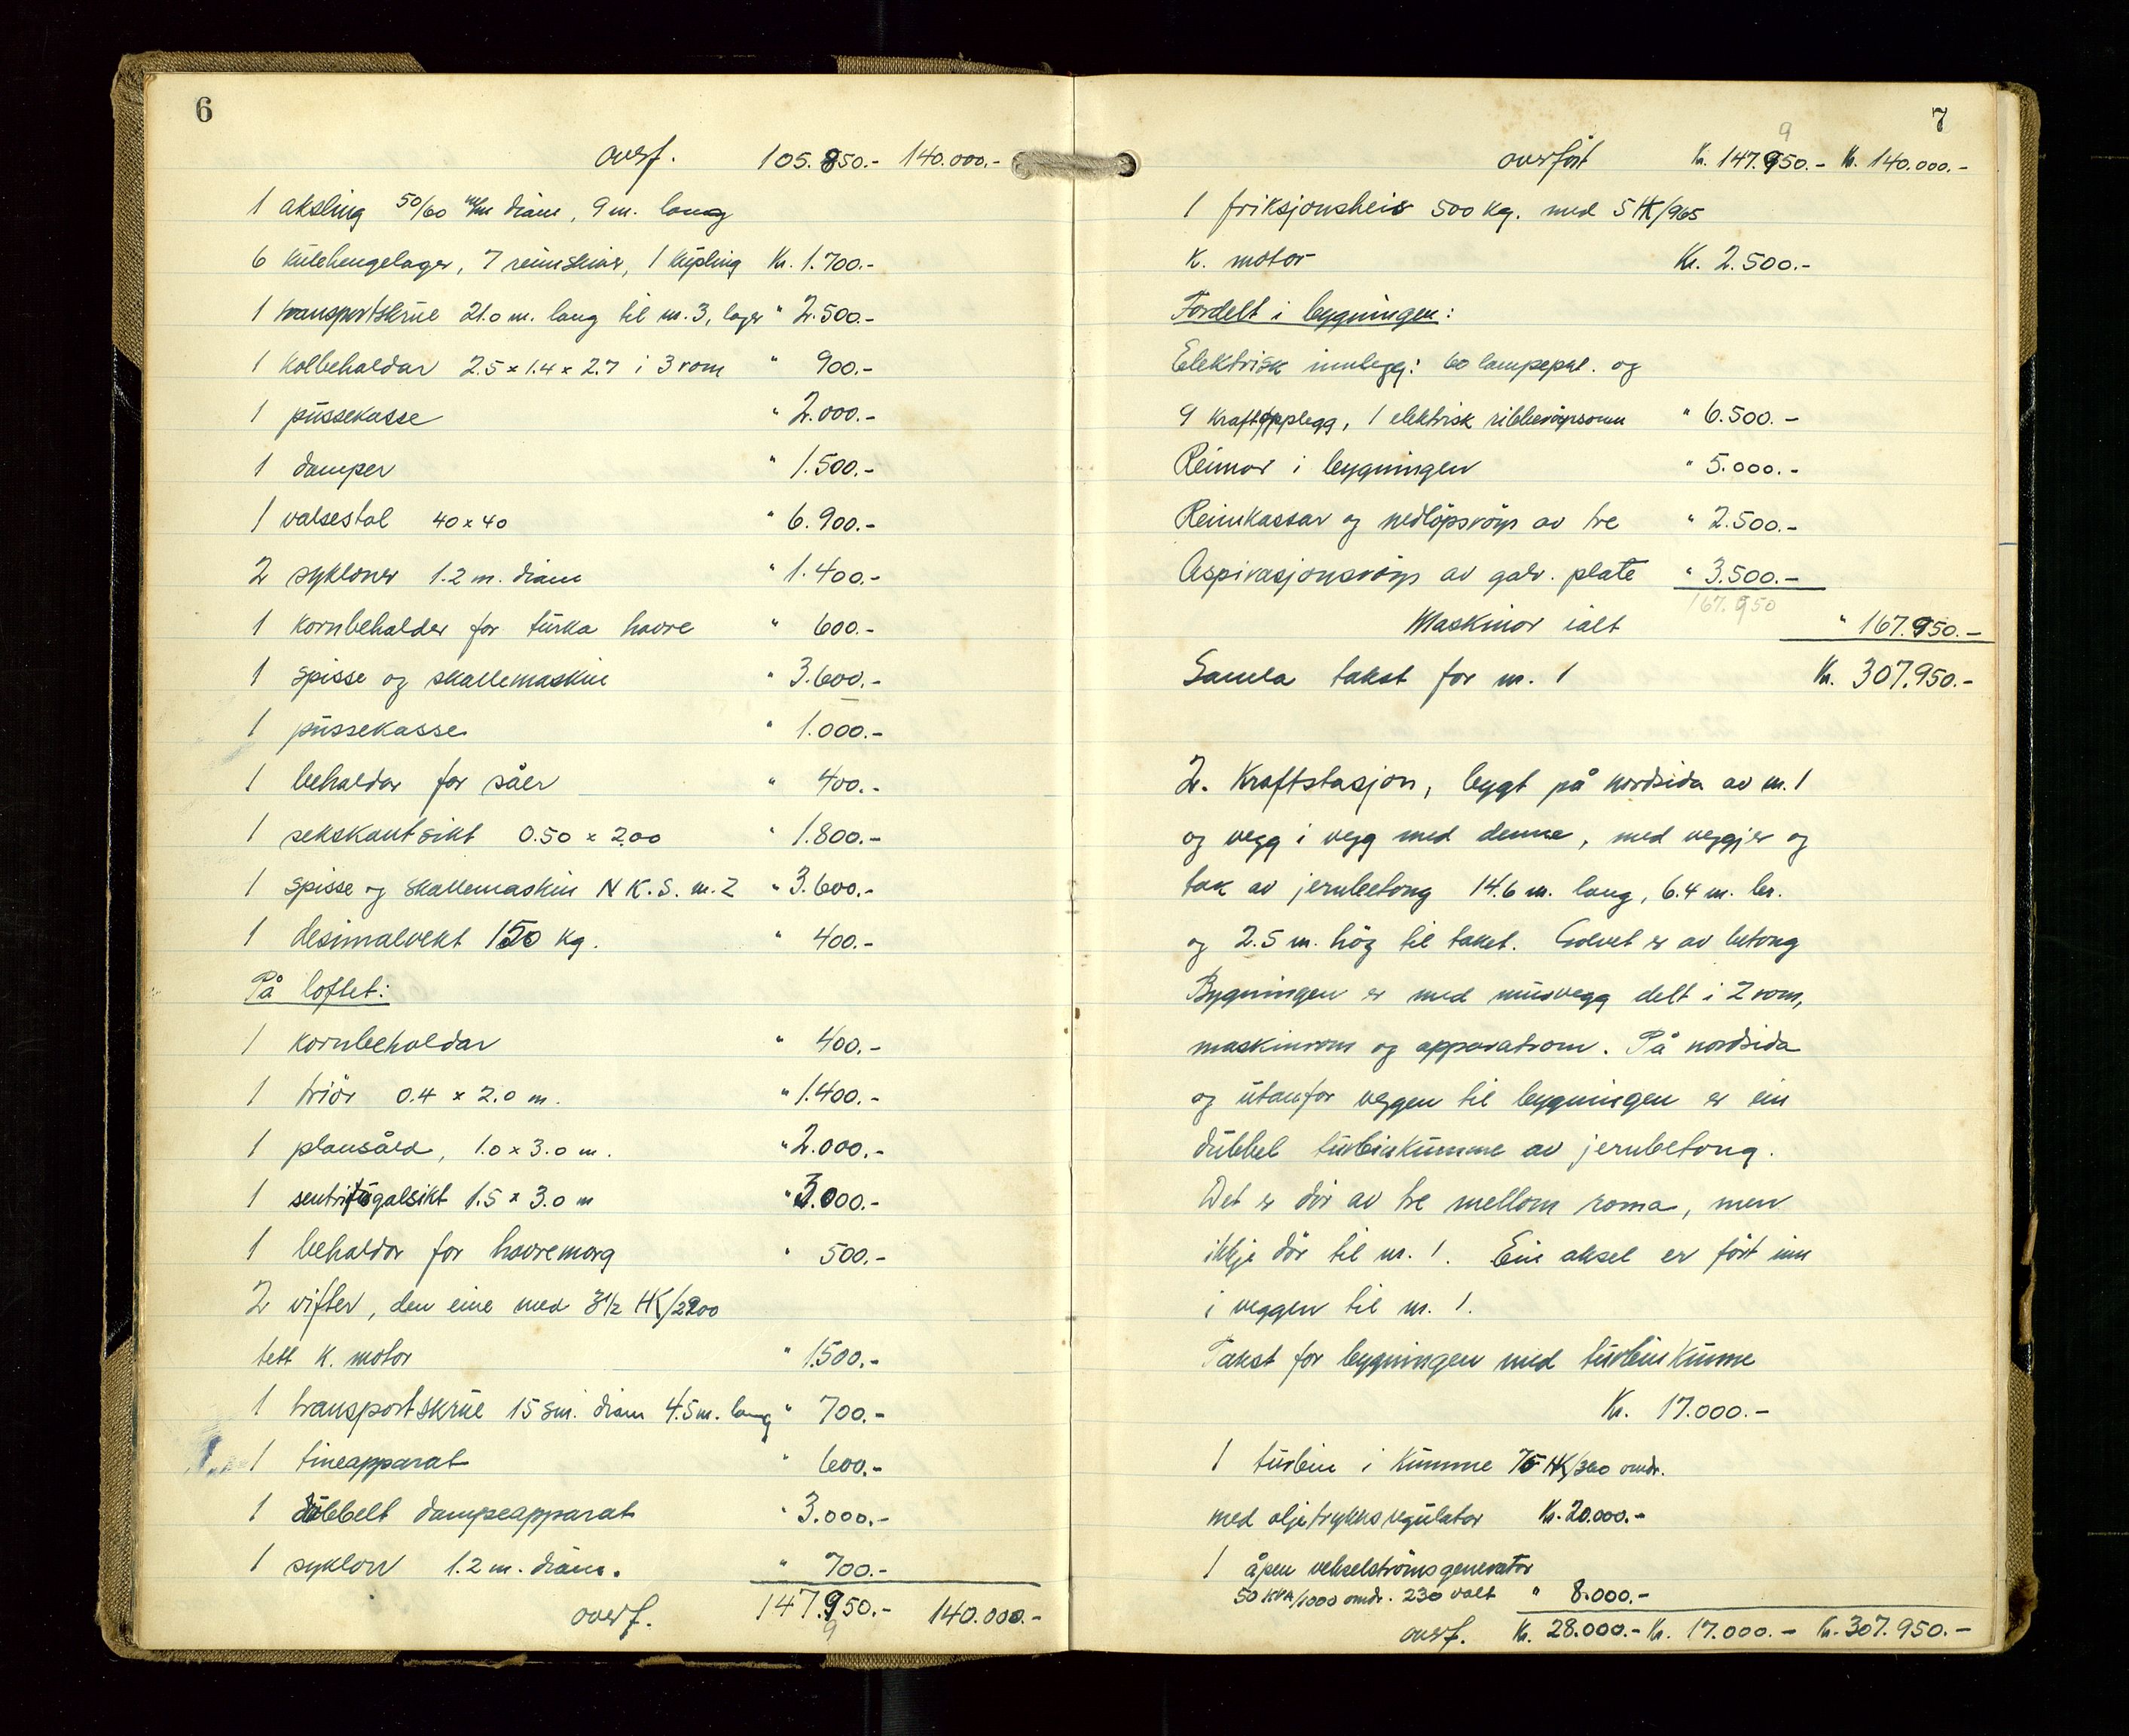 6
overf. 105.850.- 140.000.-
1 aksling 50/60 m/m diam, 9 m. lang
6 kulehengelager, 7 reimskiver, 1 kupling Kr. 1.700.-
1 transportskrue 21.0 m. lang til nr. 3, lager " 2.500.-
1 kolbehaldar 2.5 x 1.4 x 2.7 i 3 rom " 900.-
1 pussekasse " 2.000.-
1 damper " 1.500.-
1 valsestol 40 x 40 " 6.900.-
2 sykloner 1.2 m. diam " 1.400.-
1 kornbehalder for turka havre " 600.-
1 spisse og skallemaskin " 3.600.-
1 pussekasse " 1.000.-
1 behaldar for såer " 400.-
1 sekskantsikt 0.50 x 2.00 " 1.800.-
1 spisse og skallemaskin N K.S. nr. 2 " 3.600.-
1 desimalvekt 150 kg. " 400.-
På loftet:
1 kornbehaldar " 400.-
1 triör 0.4 x 2.0 m. " 1.400.-
1 plansåld, 1.0 x 3.0 m. " 2.000.-
1 sentrifugalsikt 1.5 x 3.0 m " 3.000.-
1 behaldar for havremarg " 500.-
2 vifter, den eine med 3 1/2 HK/2900
tett k. motor " 1.500.-
1 transportskrue 15 sm. diam 4.5 m. lang " 700.-
1 tineapparat " 600.-
1 dubbelt dampeapparat " 3.000.-
1 syklon 1.2 m. diam. " 700.-
overf. 147.950.- 140.000.-
9
7
9
overfört Kr. 147.950.- Kr. 140.000.-
1 friksjonsheis 500 kg. med 5 HK/965
k. motor Kr. 2.500.-
Fordelt i bygningen:
Elektrisk innlegg: 60 lampepkt. og
9 kraftopplegg, 1 elektrisk ribberöyrsomn " 6.500.-
Reimar i bygningen " 5.000.-
Reimkassar og nedlöpsröyr av tre " 2.500.-
Aspirasjonsröyr av galv. plate " 3.500.-
167.950
Maskinor ialt " 167.950.-
Samla takst for nr. 1 Kr. 307.950.-
2. Kraftstasjon, bygt på nordsida av nr. 1
og vegg i vegg med denne, med veggjer og
tak av jernbetong 14.6 m. lang, 6.4 m. br.
og 2.5 m. høg til taket. Golvet er av betong
Bygningen er med murvegg delt i 2 rom,
maskinrom og apparatrom. På nordsida
og utanfor veggen til bygningen er ein
dubbel turbinkumme av jernbetong.
Det er dör av tre mellom roma, men
ikkje dör til nr. 1. Ein aksel er fört inn
i veggen til nr. 1.
Takst for bygningen med turbinkumme
Kr. 17.000.-
1 turbin i kumme 75 HK/360 omdr.
med oljetrykksregulator Kr. 20.000.-
1 åpen vekselströmsgenerator
50 KVA/1000 omdr. 230 volt " 8.000.-
overf. Kr. 28.000.- Kr. 17.000.- Kr. 307.950.-